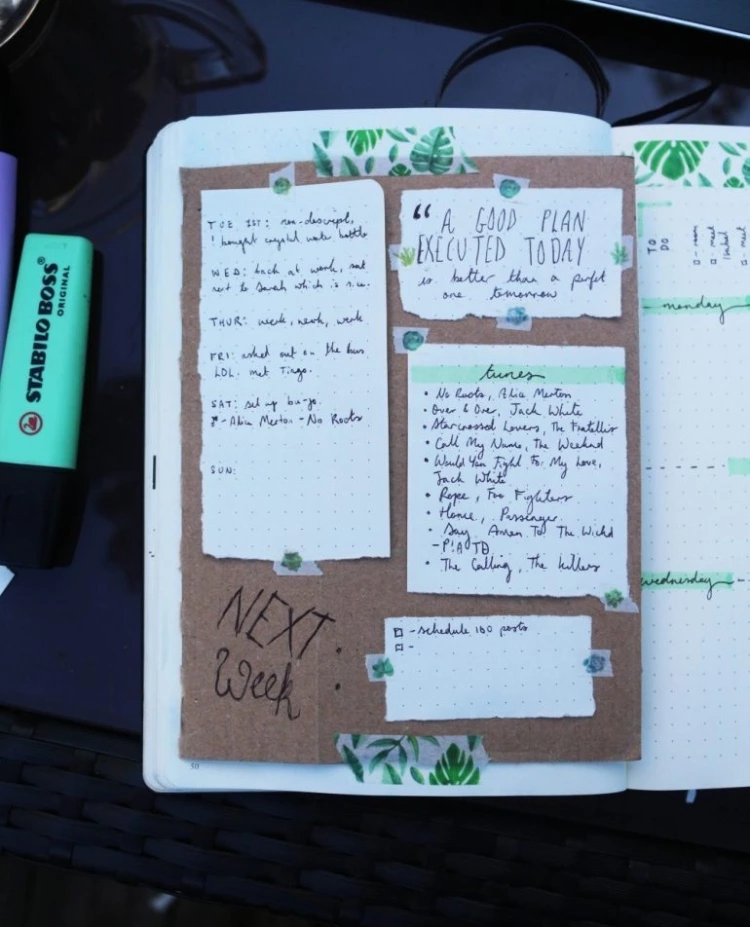 STABILO BOSS®
ORIGINAL
TUE 1ST: non-descript,
! bought crystal water bottle
WED: back at work, sat
next to Sarah which is nice.
THUR: work, work, work
FRI: asked out on the bus
LOL. met Tiago.
SAT: set up bu-jo.
- Alice Merton - No Roots
SUN:
NEXT
Week :
“ A GOOD PLAN
EXECUTED TODAY
is better than a perfect
one tomorrow
tunes
• No Roots, Alice Merton
• Over & Over, Jack White
• Starcrossed Lovers, The Fratellis
• Call My Name, The Weeknd
• Would You Fight For My Love,
Jack White
• Rope, Foo Fighters
• Home, Passenger
• Say Amen To The Wicked
- P!ATD
• The Calling, The Killers
- schedule 100 posts
-
50
TO
DO
monday
wednesday